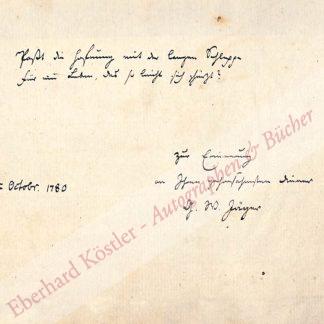 Paßt die Hoffnung mit der langen Schleppe
Für ein Leben, das so leicht sich schürzt?
zur Erinnerung
an Ihren gehorsamsten Diener
Octobr. 1780
G. W. Jäger
Eberhard Köstler - Autographen & Bücher